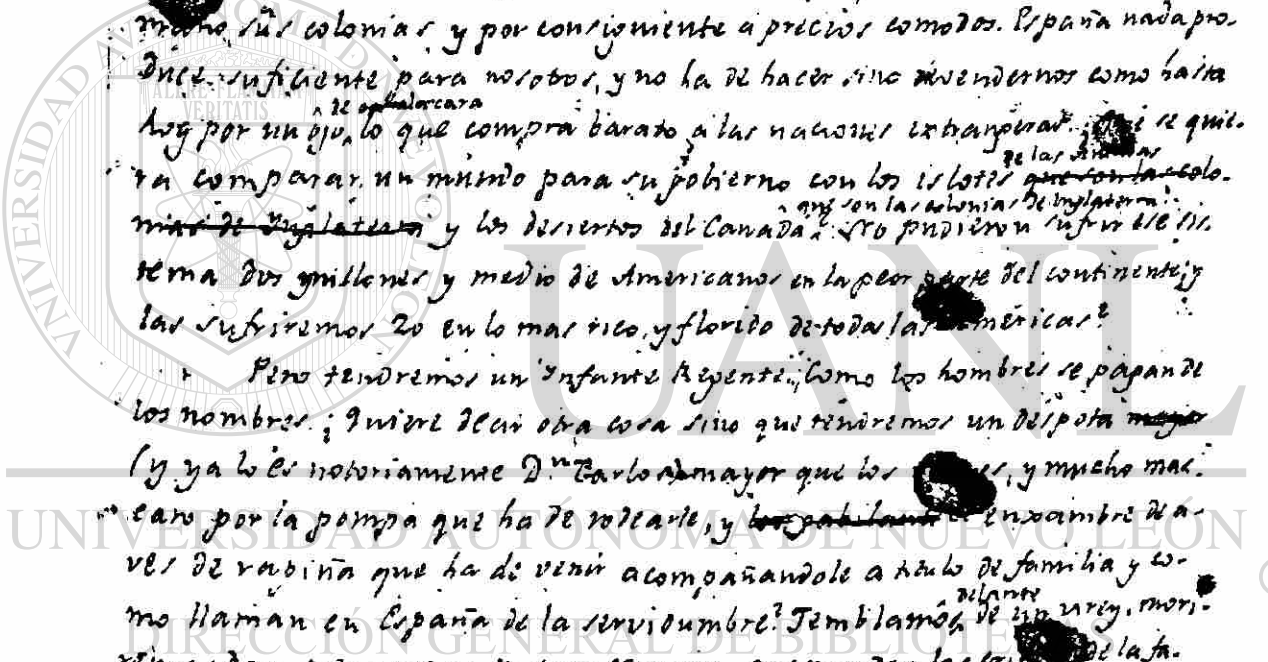 sus colonias, y por consiguiente a precios comodos. España nada pro-
duce suficiente para nosotros, y no ha de hacer sino revendernos como hasta
de la cara
hoy por un ojo lo que compra barato a las naciones extrangeras. se quie-
de las Antillas
ra comparar un mundo para su gobierno con los islotes que son las colo-
que son las colonias de Inglaterra
nias de Inglaterra y los desiertos del Canadá. No pudieron sufrir ese sis-
tema dos millones y medio de Americanos en la peor parte del continente; y
las sufriremos 20 en lo mas rico, y florido de todas las Américas?
Pero tendremos un Infante Regente. ¡Como los hombres se pagan de
los nombres! ¿Quiere decir otra cosa sino que tendremos un déspota mayor
(y ya lo es notoriamente Dn. Carlos) mayor que los, y mucho mas
caro por la pompa que ha de rodearle, y enxambre de a-
ves de rapiña que ha de venir acompañandole a titulo de familia y co-
delante
mo llaman en España de la servidumbre? Temblamos de un virey, mori-
de la fa-
UNIVERSIDAD AUTÓNOMA DE NUEVO LEÓN
UANL
DIRECCIÓN GENERAL DE BIBLIOTECAS
ALERE FLAMMAM
VERITATIS